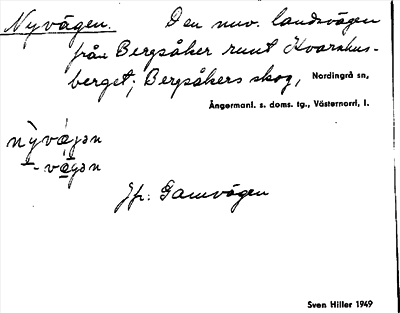 Nyvägen. Den nuv. landsvägen
från Bergsåker runt Kvarnhus-
berget; Bergsåkers skog, Nordingrå sn,
Ångermanl. s. doms. tg., Västernorrl. l.
Jfr: Gamvägen
Sven Hiller 1949